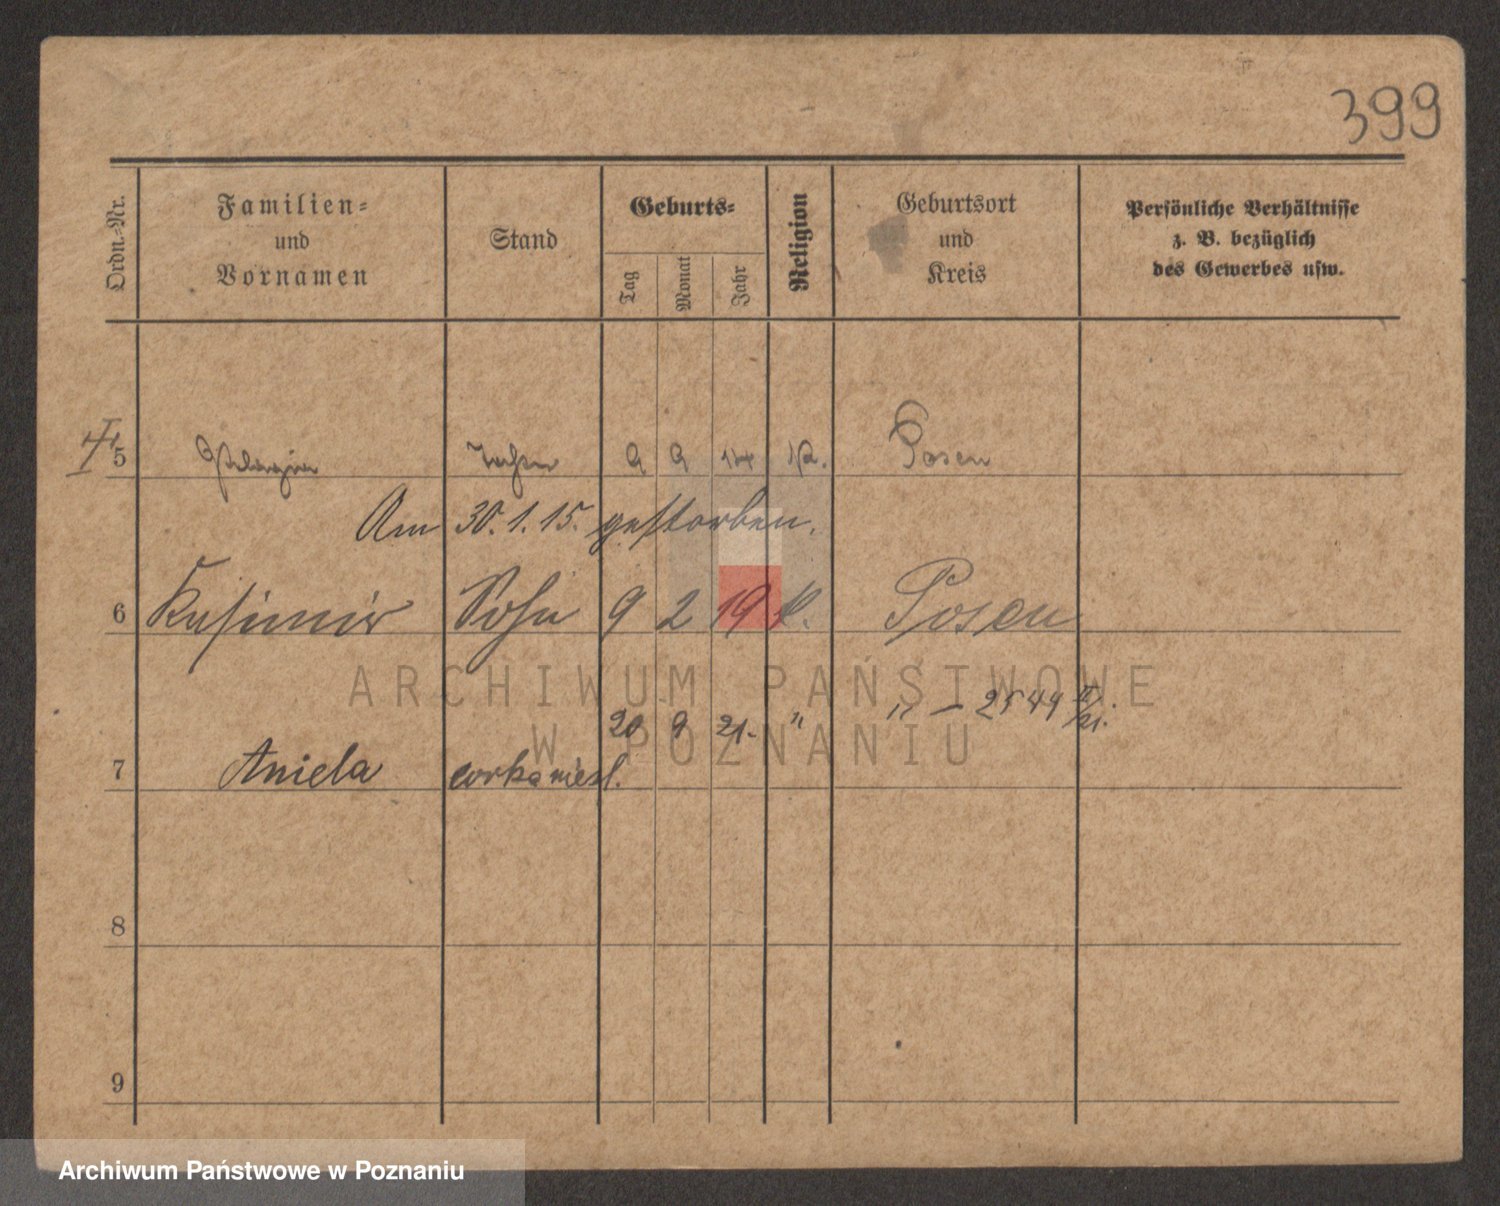 399
Ordn.-Nr. Familien- und Vornamen Stand Geburts- Tag Monat Jahr Religion Geburtsort und Kreis Persönliche Verhältnisse z. B. bezüglich des Gewerbes usw.
5 Pelagia 9 9 14 K. Posen
Am 30.1.15. gestorben.
6 Kasimir Sohn 9 2 19 k. Posen
20 9 21. " " – 2544 II/21.
7 Aniela corka niesl.
8
9
ARCHIWUM PAŃSTWOWE
W POZNANIU
Archiwum Państwowe w Poznaniu